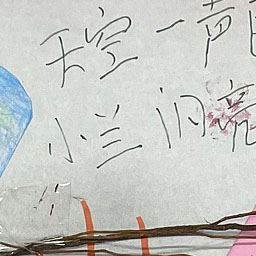 天空一声
小兰闪亮